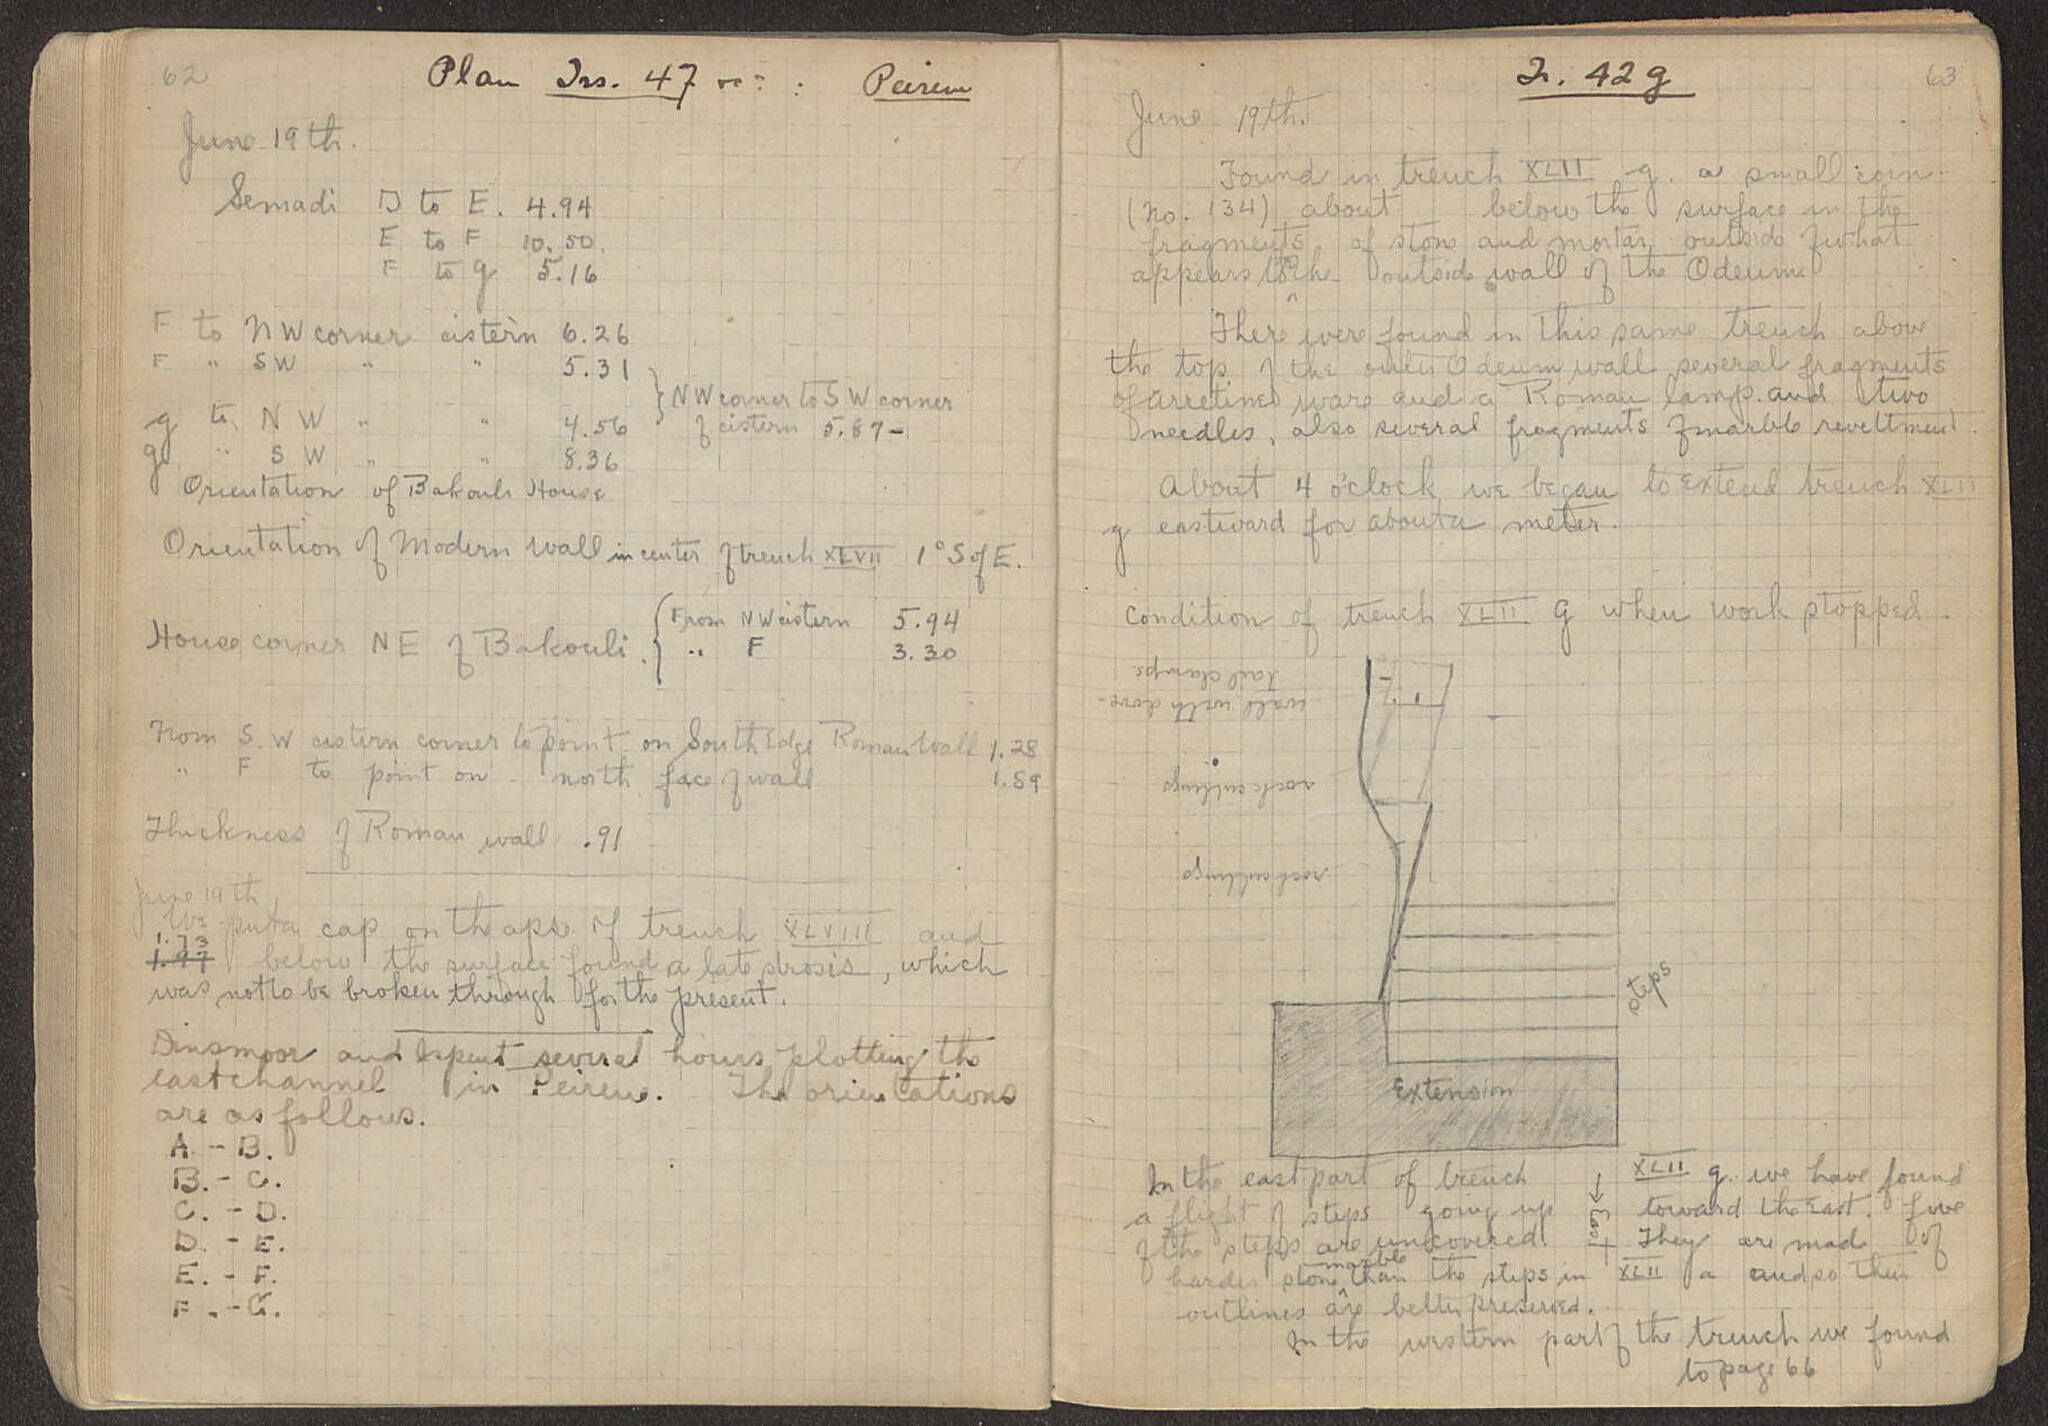 62
Plan Trs. 47 Peirene
June 19th.
Semadi D to E. 4.94
E to F 10.50.
F to g 5.16
F to NW corner cistern 6.26
F " SW " " 5.31
g to NW " " 4.56
g " SW " " 8.36
} NW corner to SW corner
of cistern 5.87-
Orientation of Bakouli House
Orientation of Modern wall in center of trench XLVII 1° S of E.
House corner NE of Bakouli. { From NW cistern 5.94
" F 3.30
From S.W cistern corner to point on South Edge Roman Wall 1.28
" F to point on north face of wall 1.89
Thickness of Roman wall .91
June 19th
We put a cap on the apse of trench XLVIII and
1.73
1.97 below the surface found a late strosis, which
was not to be broken through for the present.
Dinsmoor and I spent several hours plotting the
east channel in Peirene. The orientations
are as follows.
A. - B.
B. - C.
C. - D.
D. - E.
E. - F.
F. - G.
Tr. 42 g
63
June 19th.
Found in trench XLII g. a small coin
(no. 134) about below the surface in the
fragments of stone and mortar outside of what
appears to be the outside wall of the Odeum.
There were found in this same trench above
the top of the outer Odeum wall several fragments
of arretine ware and a Roman lamp and two
needles, also several fragments of marble revettment.
About 4 o'clock we began to extend trench XLII
g eastward for about a meter.
Condition of trench XLII g when work stopped.
wall with dove-
tail clamps
rock cuttings
rock cuttings
steps
Extension
East
In the east part of trench XLII g. we have found
a flight of steps going up toward the east. Five
of the steps are uncovered. They are made of
harder stone marble than the steps in XLII a and so their
outlines are better preserved.
In the western part of the trench we found
to page 66